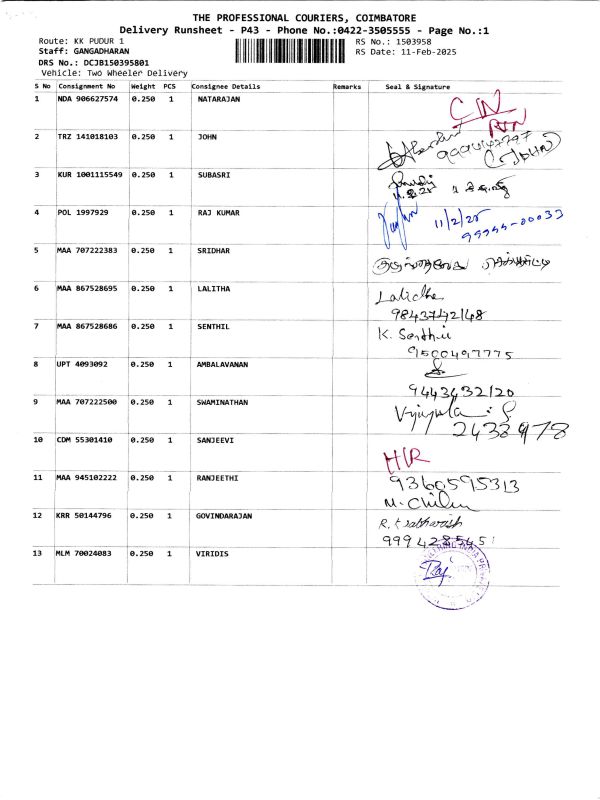 THE PROFESSIONAL COURIERS, COIMBATORE
Delivery Runsheet - P43 - Phone No.:0422-3505555 - Page No.:1
Route: KK PUDUR 1 RS No.: 1503958
Staff: GANGADHARAN RS Date: 11-Feb-2025
DRS No.: DCJB150395801
Vehicle: Two Wheeler Delivery
S No Consignment No Weight PCS Consignee Details Remarks Seal & Signature
1 NDA 906627574 0.250 1 NATARAJAN CN
2 TRZ 141018103 0.250 1 JOHN (JOHN)
3 KUR 1001115549 0.250 1 SUBASRI
4 POL 1997929 0.250 1 RAJ KUMAR 11/2/25
5 MAA 707222383 0.250 1 SRIDHAR
6 MAA 867528695 0.250 1 LALITHA Lalidha
9843742148
7 MAA 867528686 0.250 1 SENTHIL K. Senthil
9500497775
8 UPT 4093092 0.250 1 AMBALAVANAN
9443432120
9 MAA 707222500 0.250 1 SWAMINATHAN
2438978
10 CDM 55301410 0.250 1 SANJEEVI
11 MAA 945102222 0.250 1 RANJEETHI 9360595313
12 KRR 50144796 0.250 1 GOVINDARAJAN
13 MLM 70024083 0.250 1 VIRIDIS